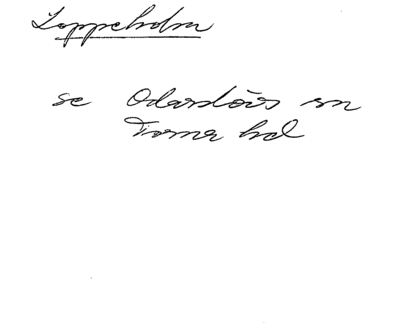 Loppeholm
se Odarslövs sn
Torna hd